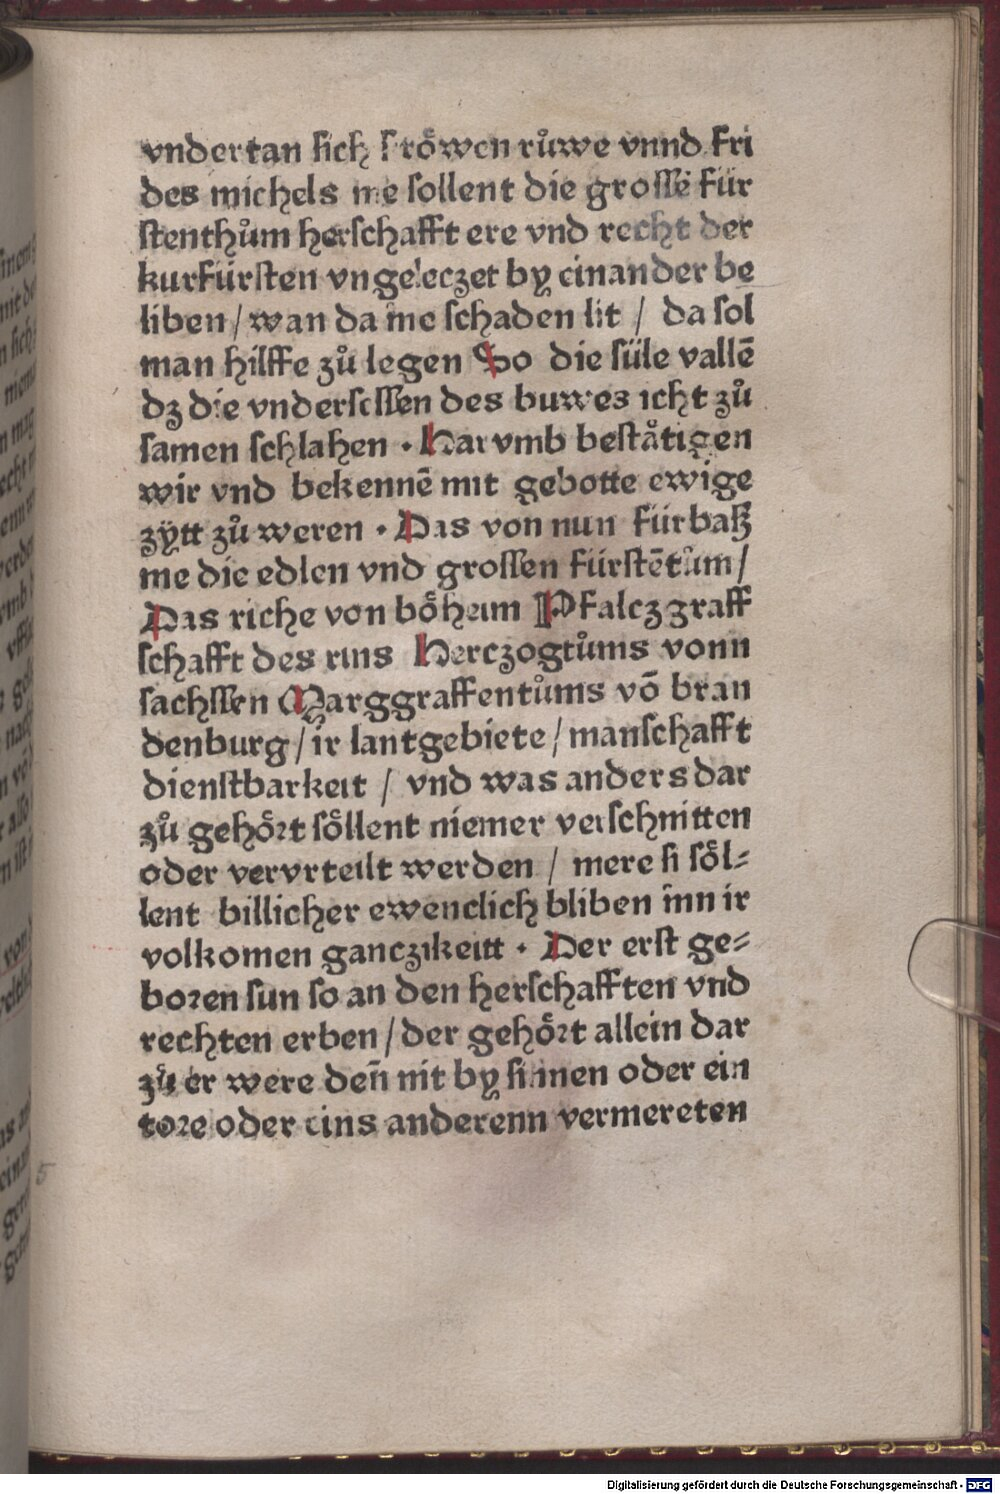 vndertan sich fröwen růwe vnnd fri
des michels me sollent die grossē für
stenthům herschafft ere vnd recht der
kurfürsten vngeleczet by einander be
liben / wan da me schaden lit / da sol
man hilffe zů legen So die süle vallē
dz die vndersessen des buwes icht zů
samen schlahen · Harvmb beståtigen
wir vnd bekennē mit gebotte ewige
zÿtt zů weren · Das von nun fürbaß
me die edlen vnd grossen fürstētům /
Das riche von böheim Pfalczgraff
schafft des rins Herczogtůms vonn
sachssen Marggraffentůms vō bran
denburg / ir lantgebiete / manschafft
dienstbarkeit / vnd was anders dar
zů gehört söllent niemer verschnitten
oder vervrteilt werden / mere si söl⸗
lent billicher ewenclich bliben inn ir
volkomen ganczikeitt · Der erst ge⸗
boren sun so an den herschafften vnd
rechten erben / der gehört allein dar
zů er were deñ nit by sinnen oder ein
tore oder eins anderenn vermereten
Digitalisierung gefördert durch die Deutsche Forschungsgemeinschaft - DFG